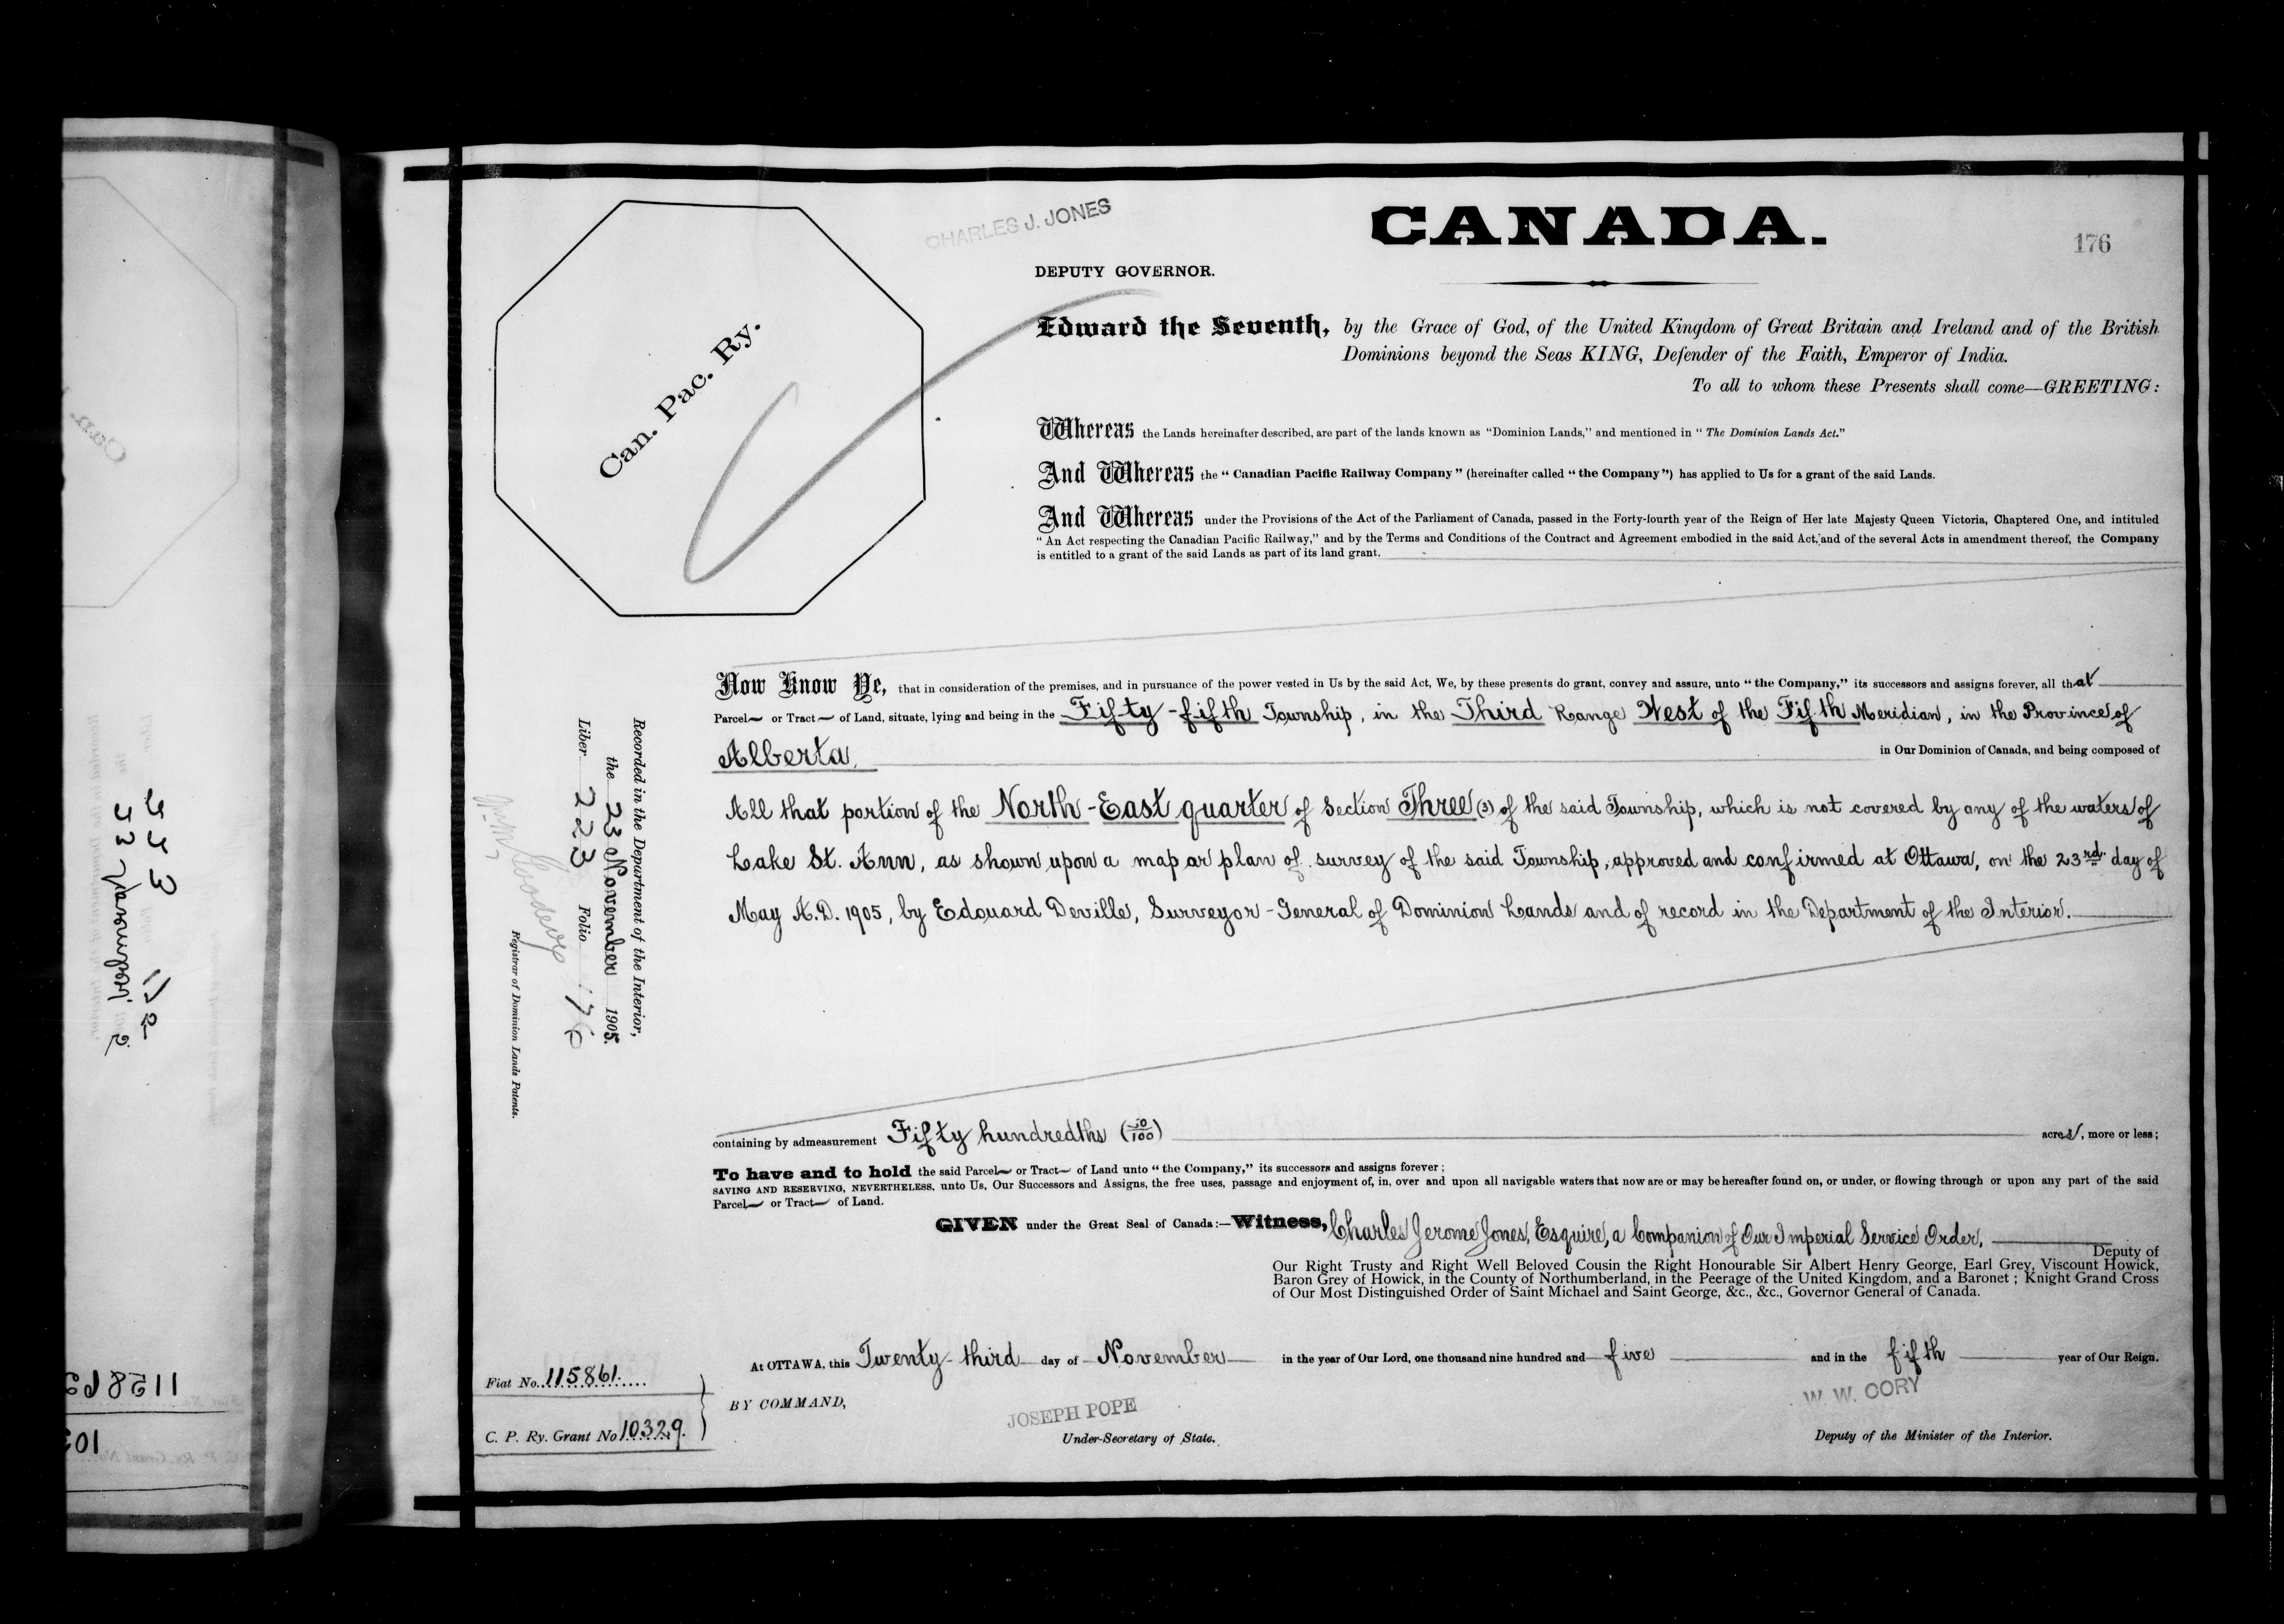 CHARLES J. JONES
CANADA.
176
DEPUTY GOVERNOR.
Can. Pac. Ry.
Edward the Seventh, by the Grace of God, of the United Kingdom of Great Britain and Ireland and of the British
Dominions beyond the Seas KING, Defender of the Faith, Emperor of India.
To all to whom these Presents shall come—GREETING:
Whereas the Lands hereinafter described, are part of the lands known as "Dominion Lands," and mentioned in "The Dominion Lands Act."
And Whereas the "Canadian Pacific Railway Company" (hereinafter called "the Company") has applied to Us for a grant of the said Lands.
And Whereas under the Provisions of the Act of the Parliament of Canada, passed in the Forty-fourth year of the Reign of Her late Majesty Queen Victoria, Chaptered One, and intituled
"An Act respecting the Canadian Pacific Railway," and by the Terms and Conditions of the Contract and Agreement embodied in the said Act, and of the several Acts in amendment thereof, the Company
is entitled to a grant of the said Lands as part of its land grant.
Now Know Ye, that in consideration of the premises, and in pursuance of the power vested in Us by the said Act, We, by these presents do grant, convey and assure, unto "the Company," its successors and assigns forever, all that
Parcel or Tract of Land, situate, lying and being in the Fifty-fifth Township, in the Third Range West of the Fifth Meridian, in the Province of
Alberta, in Our Dominion of Canada, and being composed of
All that portion of the North-East quarter of Section Three (3) of the said Township, which is not covered by any of the waters of
Lake St. Ann, as shown upon a map or plan of survey of the said Township, approved and confirmed at Ottawa, on the 23rd day of
May A.D. 1905, by Edouard Deville, Surveyor-General of Dominion Lands and of record in the Department of the Interior.
Recorded in the Department of the Interior,
the 23 November 1905.
Liber 223 Folio 176
Registrar of Dominion Lands Patents.
containing by admeasurement Fifty hundredths (50/100) acres, more or less;
To have and to hold the said Parcel or Tract of Land unto "the Company," its successors and assigns forever;
SAVING AND RESERVING, NEVERTHELESS, unto Us, Our Successors and Assigns, the free uses, passage and enjoyment of, in, over and upon all navigable waters that now are or may be hereafter found on, or under, or flowing through or upon any part of the said
Parcel or Tract of Land.
GIVEN under the Great Seal of Canada:—Witness, Charles Jerome Jones, Esquire, a Companion of Our Imperial Service Order,
Deputy of
Our Right Trusty and Right Well Beloved Cousin the Right Honourable Sir Albert Henry George, Earl Grey, Viscount Howick,
Baron Grey of Howick, in the County of Northumberland, in the Peerage of the United Kingdom, and a Baronet; Knight Grand Cross
of Our Most Distinguished Order of Saint Michael and Saint George, &c., &c., Governor General of Canada.
At OTTAWA, this Twenty-third day of November in the year of Our Lord, one thousand nine hundred and five and in the fifth year of Our Reign.
Fiat No. 115861.
C. P. Ry. Grant No 10329.
BY COMMAND,
JOSEPH POPE
Under-Secretary of State.
W. W. CORY
Deputy of the Minister of the Interior.